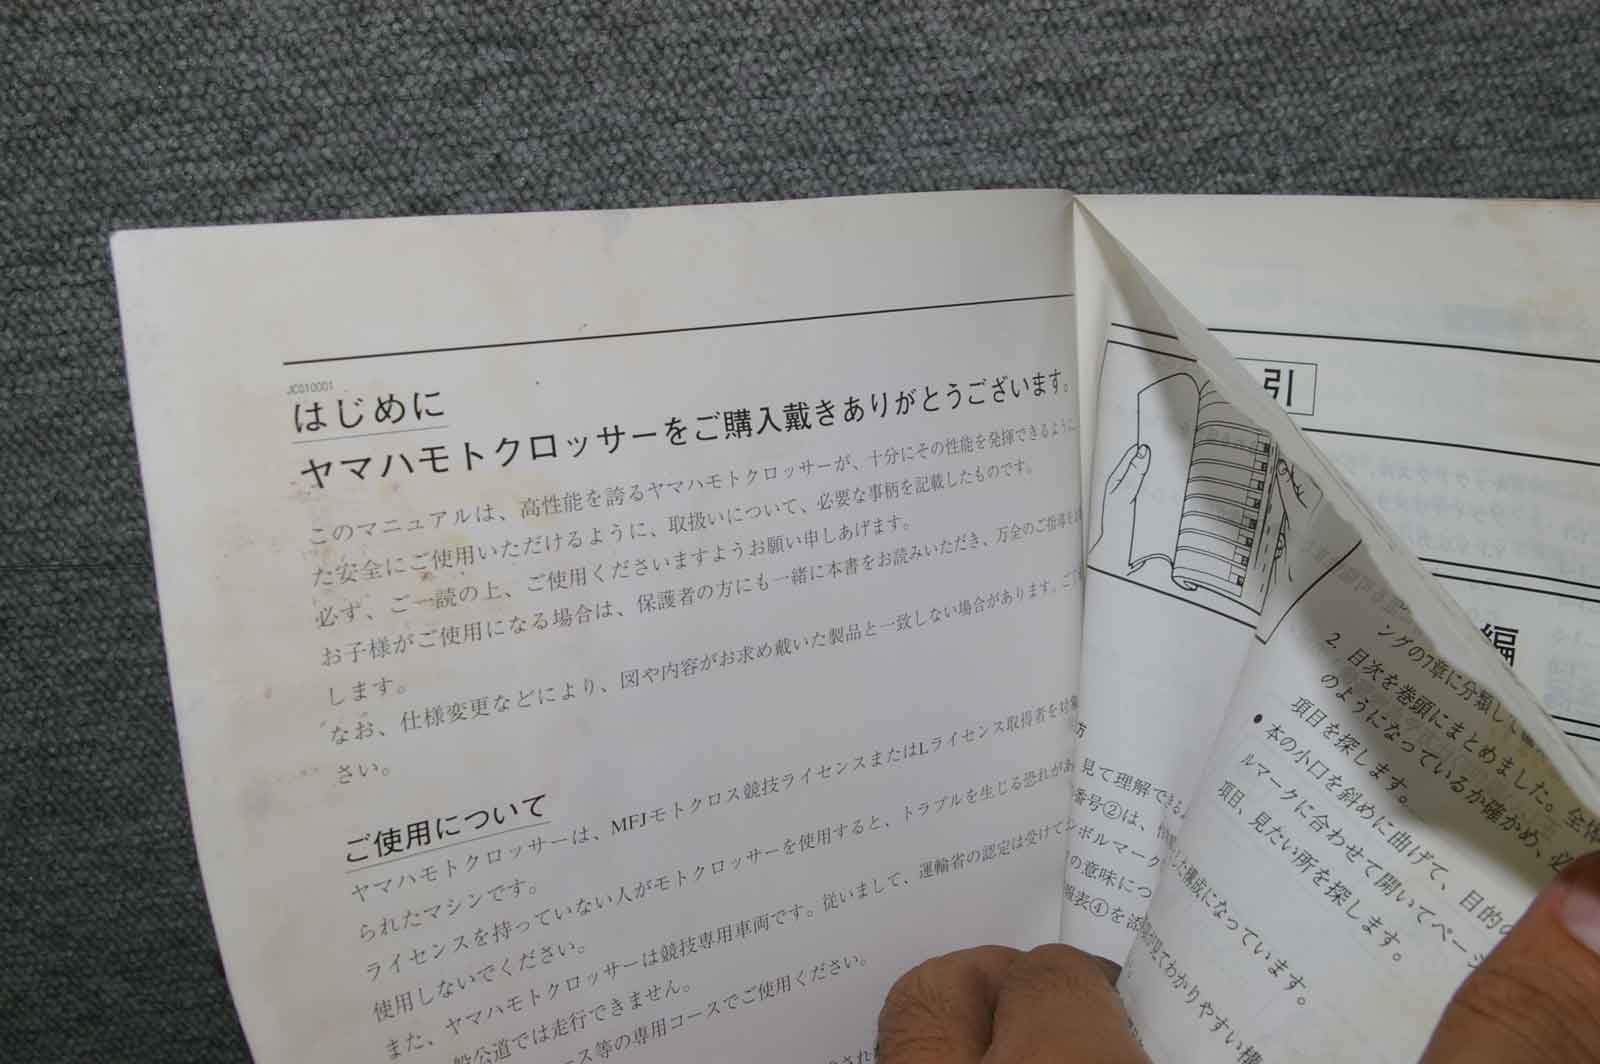 JC010001
はじめに
ヤマハモトクロッサーをご購入戴きありがとうございます。
このマニュアルは、高性能を誇るヤマハモトクロッサーが、十分にその性能を発揮できるように
た安全にご使用いただけるように、取扱いについて、必要な事柄を記載したものです。
必ず、ご一読の上、ご使用くださいますようお願い申しあげます。
お子様がご使用になる場合は、保護者の方にも一緒に本書をお読みいただき、万全のご指導を
します。
なお、仕様変更などにより、図や内容がお求め戴いた製品と一致しない場合があります。ご
さい。
ご使用について
ヤマハモトクロッサーは、MFJモトクロス競技ライセンスまたはLライセンス取得者を対象
られたマシンです。
ライセンスを持っていない人がモトクロッサーを使用すると、トラブルを生じる恐れがあ
使用しないでください。
また、ヤマハモトクロッサーは競技専用車両です。従いまして、運輸省の認定は受けて
般公道では走行できません。
ース等の専用コースでご使用ください。
方
見て理解できる
番号②は、作
ボルマーク
の意味につ
報表④を活
引
編
ングの7章に分類して
2. 目次を巻頭にまとめました。全体
のようになっているか確かめ、必
項目を探します。
● 本の小口を斜めに曲げて、目的の
ルマークに合わせて開いてページ
項目、見たい所を探します。
した構成になっています。
見てわかりやすい構